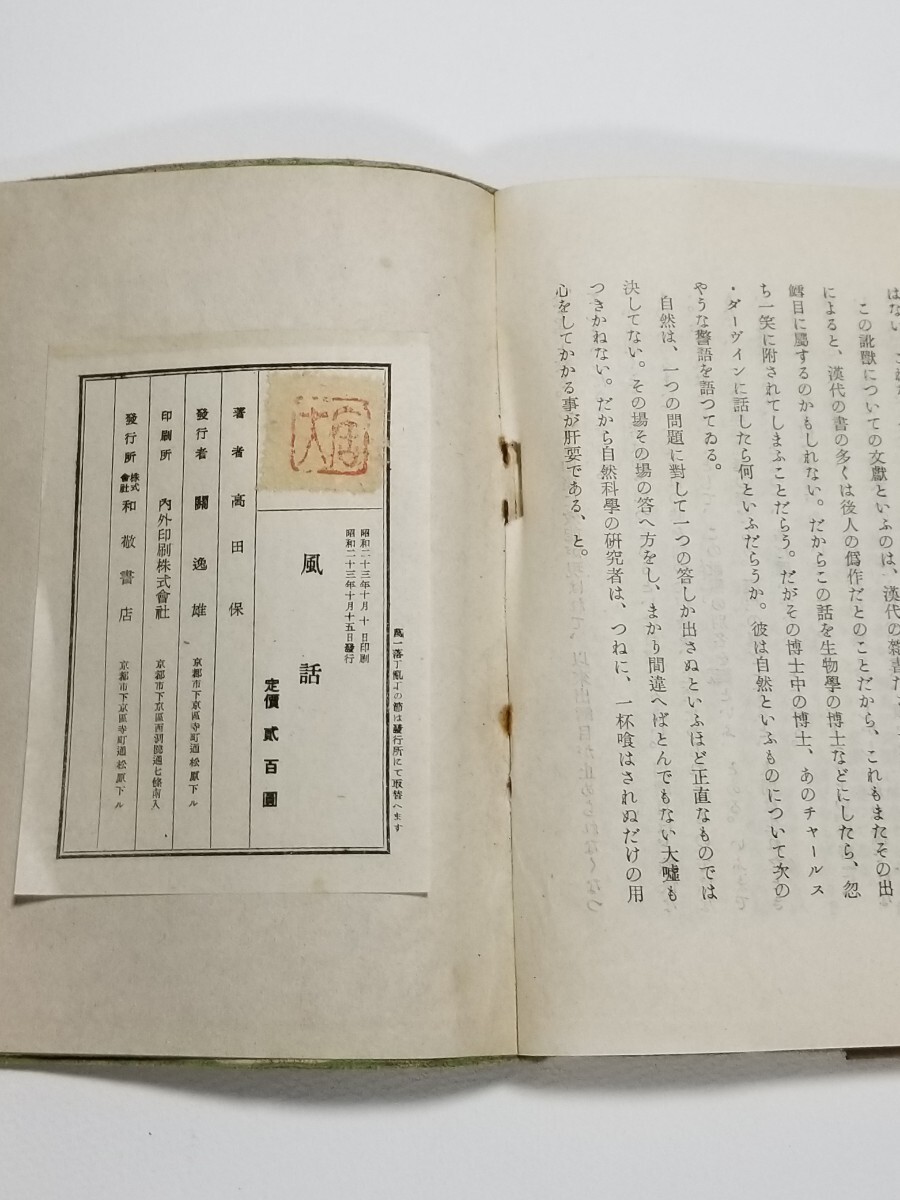 この訛獸についての文獻といふのは、漢代の雜書だ
によると、漢代の書の多くは後人の僞作だとのことだから、これもまたその出
鱈目に屬するのかもしれない。だからこの話を生物學の博士などにしたら、忽
ち一笑に附されてしまふことだらう。だがその博士中の博士、あのチャールス
・ダーヴインに話したら何といふだらうか。彼は自然といふものについて次の
やうな警語を語つてゐる。
自然は、一つの問題に對して一つの答しか出さぬといふほど正直なものでは
決してない。その場その場の答へ方をし、まかり間違へばとんでもない大嘘も
つきかねない。だから自然科學の硏究者は、つねに、一杯喰はされぬだけの用
心をしてかかる事が肝要である、と。
萬一落丁亂丁の節は發行所にて取替へます
昭和二十三年十月十日印刷
昭和二十三年十月十五日發行
風話
定價貳百圓
著者 高田保
發行者 關逸雄 京都市下京區寺町通松原下ル
印刷所 內外印刷株式會社 京都市下京區西洞院通七條南入
發行所 株式會社 和敬書店 京都市下京區寺町通松原下ル